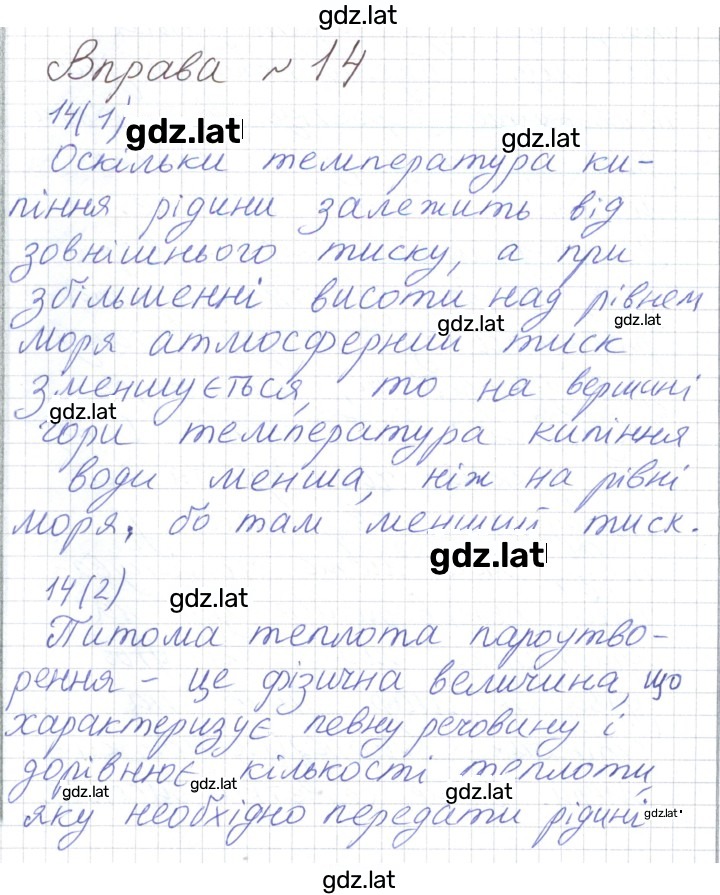 gdz.lat
Вправа № 14
14(1)
gdz.lat
gdz.lat
Оскільки температура ки-
піння рідини залежить від
зовнішнього тиску, а при
збільшенні висоти над рівнем
gdz.lat
gdz.lat
моря атмосферний тиск
зменшується, то на вершині
gdz.lat
гори температура кипіння
води менша, ніж на рівні
моря, бо там менший тиск.
gdz.lat
14(2)
gdz.lat
Питома теплота пароутво-
рення - це фізична величина, що
характеризує певну речовину і
дорівнює кількості теплоти,
gdz.lat
gdz.lat
gdz.lat
яку необхідно передати рідині
gdz.lat
gdz.lat